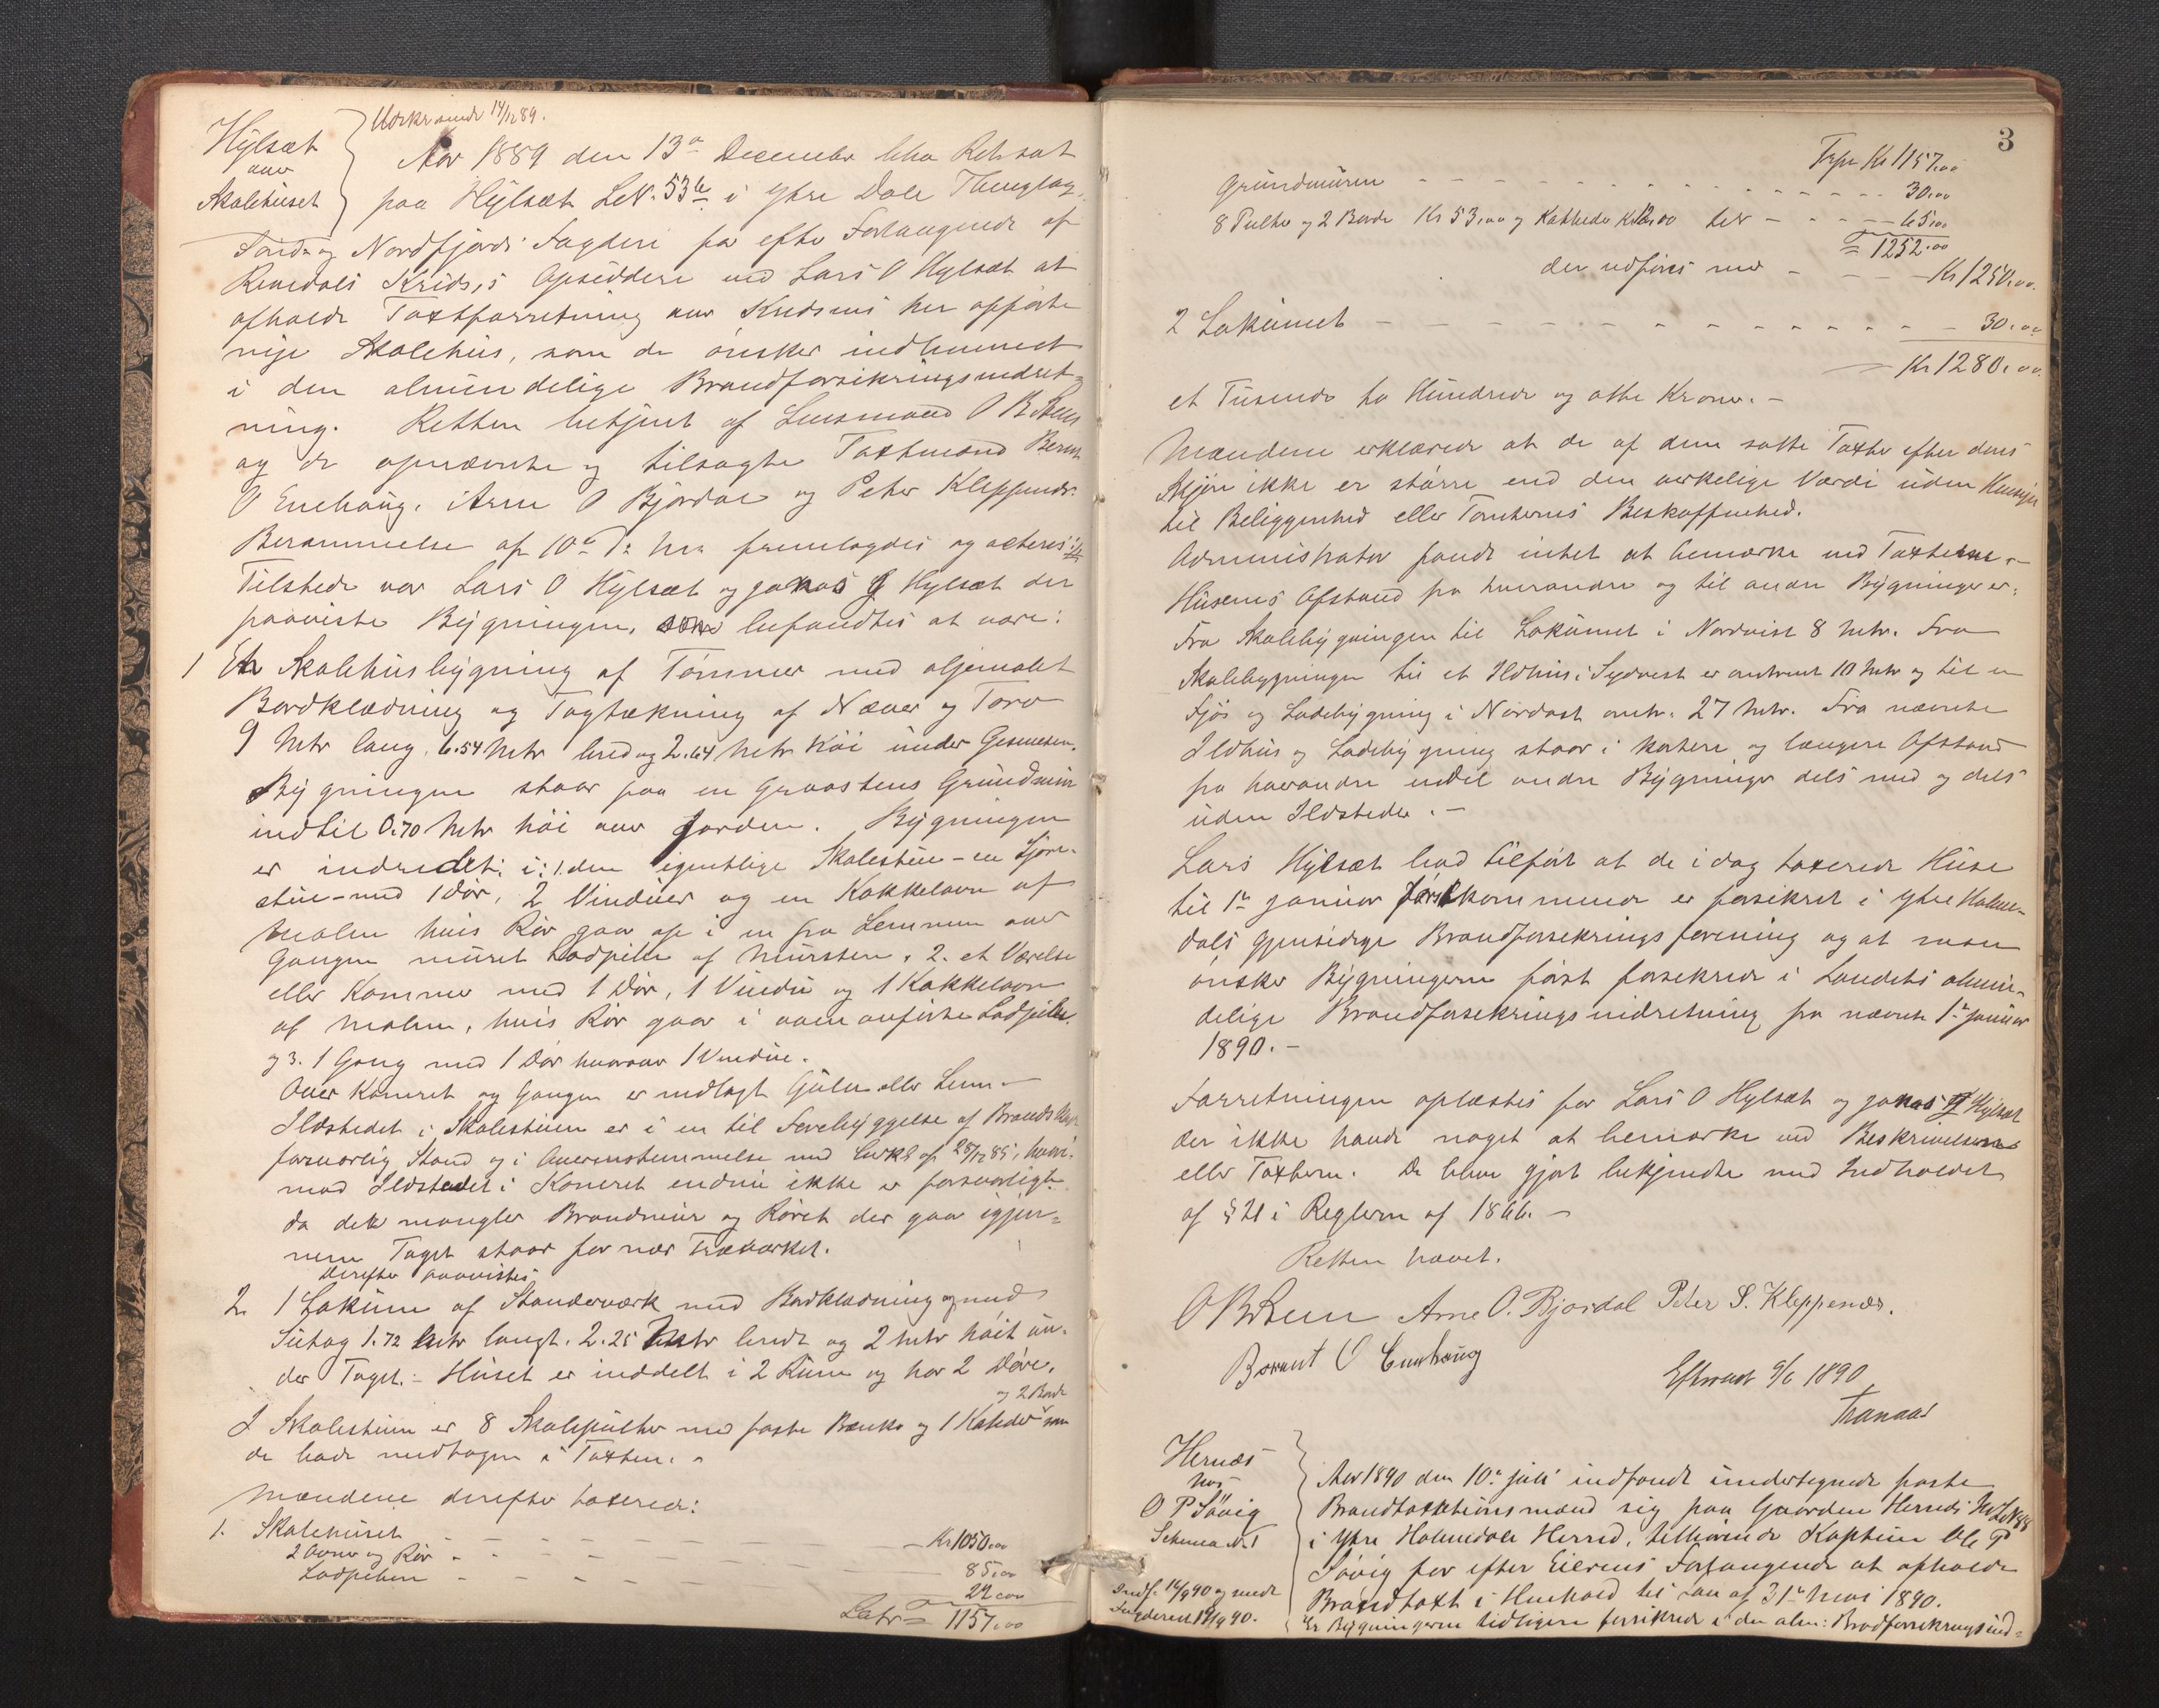 Udskr. sendt 14/12 89.
Hylsæt
over
Skolehuset
Aar 1889 den 13de December blev Ret sat
paa Hylsæt LN. 53 b i Ytre Dale Thinglag,
Sønd- og Nordfjords Fogderi for efter Forlangende af
Kreds,s Opsiddere ved Lars O Hylsæt at
afholde Taxtforretning over Kredsens her opførte
nye Skolehus, som de ønsker indlemmet
i den almindelige Brandforsikringsindret-
ning. Retten betjent af Lensmand O B
og de opnævnte og tilsagte Taxtmænd Bernt
O Enehaug, Arne O Bjordal og Peter Kleppenæs.
Berammelse af 10de ds. blev fremlagdes og acteres:
Tilstede var Lars O Hylsæt og Jonas J Hylsæt der
paaviste Bygningen, som befandtes at være:
1 En Skolehusbygning af Tømmer med oljemalet
Bordklædning og Tagtækning af Næver og Torv
9 Metr lang, 6.54 Metr bred og 2.64 Metr høi under Gesimsen.
Bygningen staar paa en Graastens Grundmur
indtil 0.70 Metr høi over Jorden. Bygningen
er indredet i: 1. den egentlige Skolestue - en
stue - med 1 Dør, 2 Vinduer og en Kakkelovn af
Malm hvis Rør gaar op i en fra Lemmen over
Gangen muret Lodpibe af Mursten, 2. et Værelse
eller Kammer med 1 Dør, 1 Vindu og 1 Kakkelovn
af Malm, hvis Rør gaar i ovenanførte Lodpibe,
og 3. 1 Gang med 1 Dør hvorover 1 Vindue.
Over Kamret og Gangen er nedlagt Gulv eller Lem.-
Ildstedet i Skolestuen er i en til Forebyggelse af Brands
forsvarlig Stand og i Overensstemmelse med Cirk. af 28/12 85, hvori-
mod Ildstedet i Kamret endnu ikke er forsvarligt
da det mangler Brandmur og Røret der gaar igjen-
nem Taget staar for nær Træværket.
Derefter paavistes
2. 1 Lokum af Standerværk med Bordklædning og med
Sutag 1.72 Metr langt, 2.25 Metr bredt og 2 Metr høit un-
der Taget. - Huset er inddelt i 2 Rum og har 2 Døre.
og 2 Borde
I Skolestuen er 8 Skolepulte med faste Bænke og 1 Katheder som
de havde medtagen i Taxten. -
Mændene derefter taxerede:
1. Skolehuset - - - Kr 1050,00
2 Ovne og Rør - - - 85,00
Lodpiben - - - 22,00
Latr = 1157,00
3
Trpr Kr 1157,00
Grundmuren - - - 30,00
8 Pulte og 2 Borde Kr 53,00 og Katheder Kr 12,00 tils - - - 65,00
= 1252,00
der udføres med - - - Kr 1250,00.
2 Lokumet - - - 30,00
Kr 1280,00.
et Tusende to Hundrede og otte Kroner. -
Mændene erklærede at de af dem satte Taxter efter deres
Skjøn ikke er større end den virkelige Værdi uden Hensyn
til Beliggenhed eller Tomternes Beskaffenhed.
Administrator fandt intet at bemærke ved Taxterne. -
Husenes Afstand fra hverandre og til andre Bygninger er:
Fra Skolebygningen til Lokumet i Nordvest 8 Metr. Fra
Skolebygningen til et Ildhus i Sydvest er omtrent 10 Metr og til en
Fjøs og Ladebygning i Nordost omtr. 27 Metr. Fra nævnte
Ildhus og Ladebygning staar i kortere og længere Afstand
fra hverandre endel andre Bygninger dels med og dels
uden Ildsteder. -
Lars Hylsæt lod tilført at de i dag taxerede Huse
til 1ste Januar førstkommende er forsikret i Ytre Holme-
dals Gjensidige Brandforsekringsforening og at man
ønsker Bygningerne først forsekrede i Landets almin-
delige Brandforsekringsindretning fra nævnte 1ste Januar
1890. -
Forretningen oplæstes for Lars O Hylsæt og Jonas J Hylsæt
der ikke havde noget at bemærke ved Beskrivelsen
eller Taxterne. De blev gjort bekjendte med Indholdet
af § 21 i Reglerne af 1866. -
Retten hævet.
Arne O. Bjordal Peter S. Kleppenæs.
Berent O Enehaug
Efterseet 9/6 1890
Hernæs
hos
O P Søvig
Schema N. 1
Indf. 14/9 90 og sendt
Fogderiet 19/9 90.
Aar 1890 den 10de Juli indfandt undertegnede faste
Brandtaxtionsmænd sig paa Gaarden Hernæs
i Ytre Holmedals Herred, tilhørende Kaptein Ole P
Søvig for efter Eierens Forlangende at afholde
Brandtaxt i Henhold til Lov af 31te Mai 1890.
Er Bygningerne tidligere forsikrede i den alm: Brandforsekringsind-